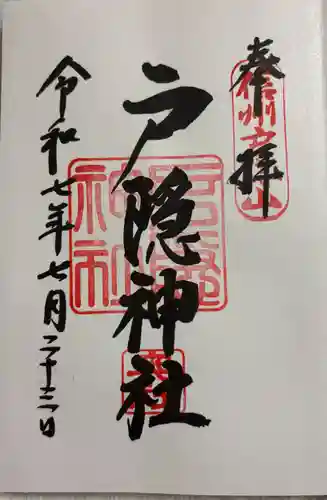 奉拝
信州戸隠山
戸隠神社
戸隠
神社
令和七年七月二十三日